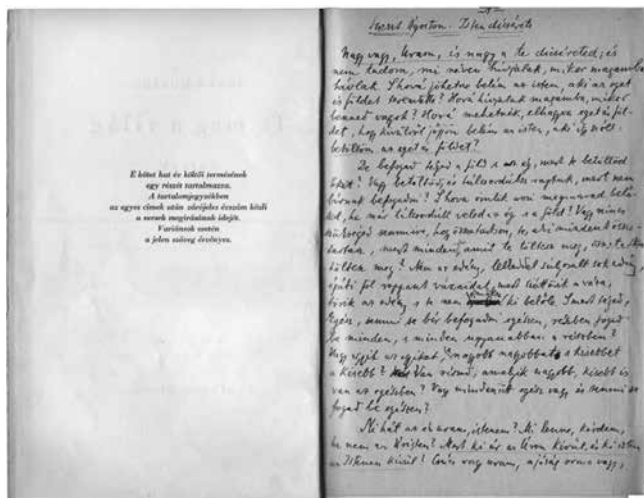 E kötet hat év költői termésének
egy részét tartalmazza.
A tartalomjegyzékben
az egyes címek után zárójeles évszám közli
a versek megírásának idejét.
Variánsok esetén
a jelen szöveg érvényes.
Szent Ágoston: Isten dicsérete
Nagy vagy, Uram, és nagy a te dicséreted; és
nem tudom, mi néven hívjalak, mikor magamba
hívlak. S hová jöhetne belém az isten, aki az eget
és földet teremtette? Hová hívjalak magamba, mikor
benned vagyok? Hová mehetnék, elhagyva eget és föl-
det, hogy kívülről jőjjön belém az isten, aki így szólt:
betöltöm az eget és földet?
De befogad téged a föld s az ég, mert te betöltöd
őket? Vagy betöltöd, és túlcsordulsz rajtuk, mert nem
bírnak befogadni? S hova omlik ami megmarad belő-
led, ha már túlcsordult veled az ég s a föld? Vagy nincs
szükséged semmire, hogy összetartson, te, aki mindent össze-
tartasz, mert mindent, amit te töltesz meg,
töltöd meg? Nem az edény, telleddel
föl roppant vázaidat, mert
törik az edény s te nem ki belőle. S mert téged,
egész, semmi se bír befogadni egészen, részben fogad
be minden, s minden ugyanabban a részben?
Vagy egyik az egyiket, nagyobb nagyobbat s kisebbet
a kisebb? Van részed, amelyik nagyobb, kisebb és
van az egészben? Vagy mindenütt egész vagy és semmi se
fogad be egészen?
Mi hát az én uram, istenem? Mi lenne, kérdem,
ha nem az Úristen? Mert ki úr az Úron kívül, és ki isten
az Istenen kívül? uram, a jóság orma vagy,